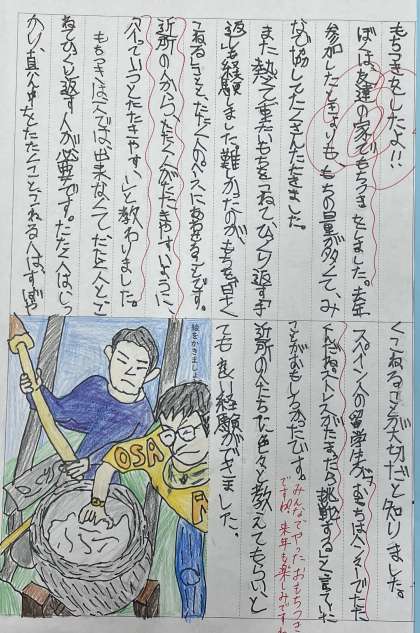 もちつきをしたよ!!
ぼくは、友達の家でもちつきをしました。去年
参加したときよりも、もちの量が多くて、み
んなで協してたくさんたたきました。
また熱くて重たいもちをつねてひっくり返す手
返しも経験しました。難かったのがもちを早く
こねることと、たたく人のペースにあわせることです。
近所の人から、たたく人がたたきやすいように、
といっとたたきやすいと教わりました。
もちつきは一人では出来なくて、たたく人とこ
ねてひっくり返す人が必要です。たたく人はしっ
かり真ん中をたたくこと、こねる人は、すばや
くこねることが大切だと知りました。
スペイン人の留学生が「もちはへいわでたた
ストレスがたまったら挑戦する」と言っていた
ことがおもしろかったです。
近所の人たちに色々と教えてもらいと
ても良い経験ができました。
みんなでやったおもちつき
ですね。来年も楽しみですね
絵をかきましょう
OSA